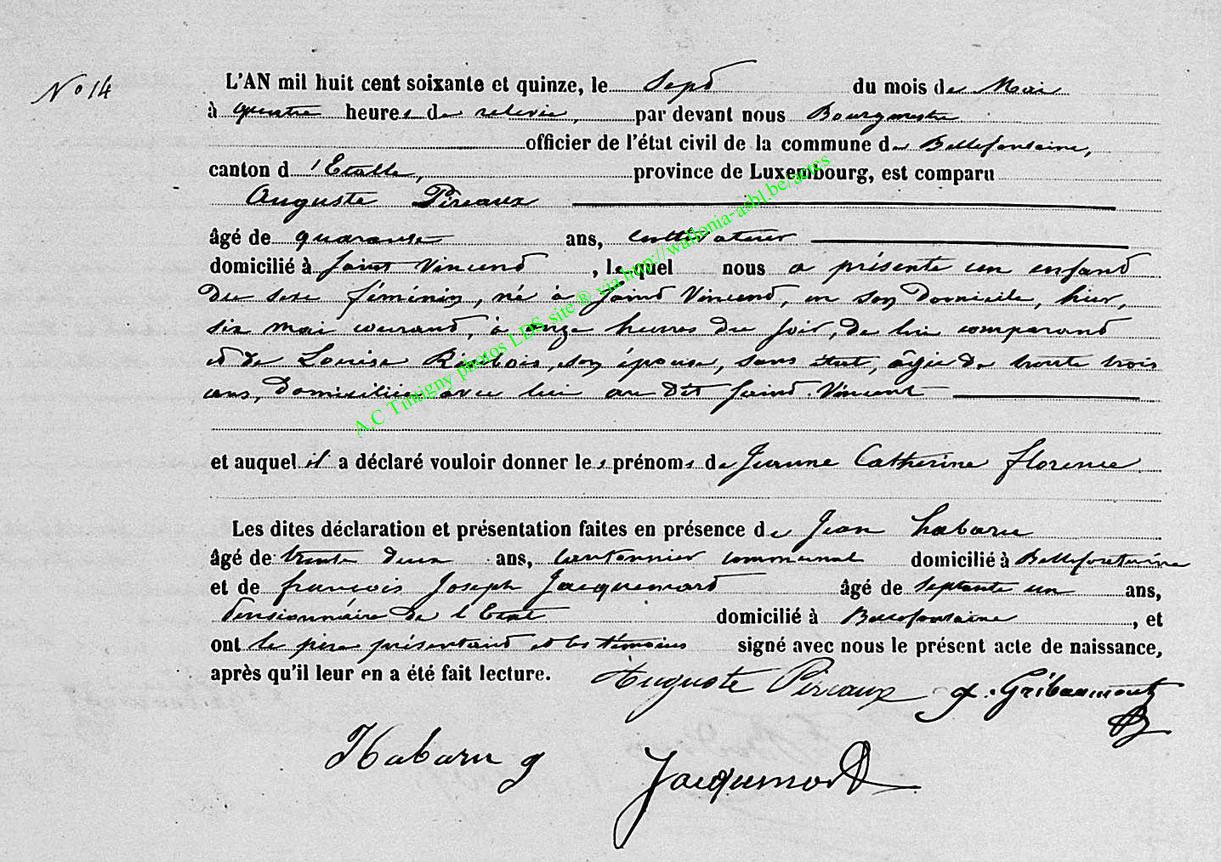 No 14
L'AN mil huit cent soixante et quinze, le Sept du mois de Mai
à quatre heures de relevée, par devant nous Bourgmestre
officier de l'état civil de la commune de Bellefontaine,
canton d'Etalle, province de Luxembourg, est comparu
Auguste Pireaux
âgé de quarante ans, cultivateur
domicilié à Saint Vincent, lequel nous a présenté un enfant
du sexe féminin, né à Saint Vincent, en son domicile, hier,
six mai courant, à onze heures du soir, de lui comparant
et de Louise son épouse, sans état, âgée de trente trois
ans, domiciliée avec lui au dit Saint-Vincent
et auquel il a déclaré vouloir donner les prénoms de Jeanne Catherine Florence
Les dites déclaration et présentation faites en présence de Jean habaru
âgé de trente deux ans, cantonnier communal domicilié à Bellefontaine
et de françois Joseph Jacquemard âgé de septante un ans,
Pensionnaire de l'Etat domicilié à Bellefontaine, et
ont le père présentant et les témoins signé avec nous le présent acte de naissance,
après qu'il leur en a été fait lecture. Auguste Pireaux J. Gribaumont
Habaru g Jacquemard
A.C Tintigny photos LDS site ® via http://wallonia-asbl.be/actes